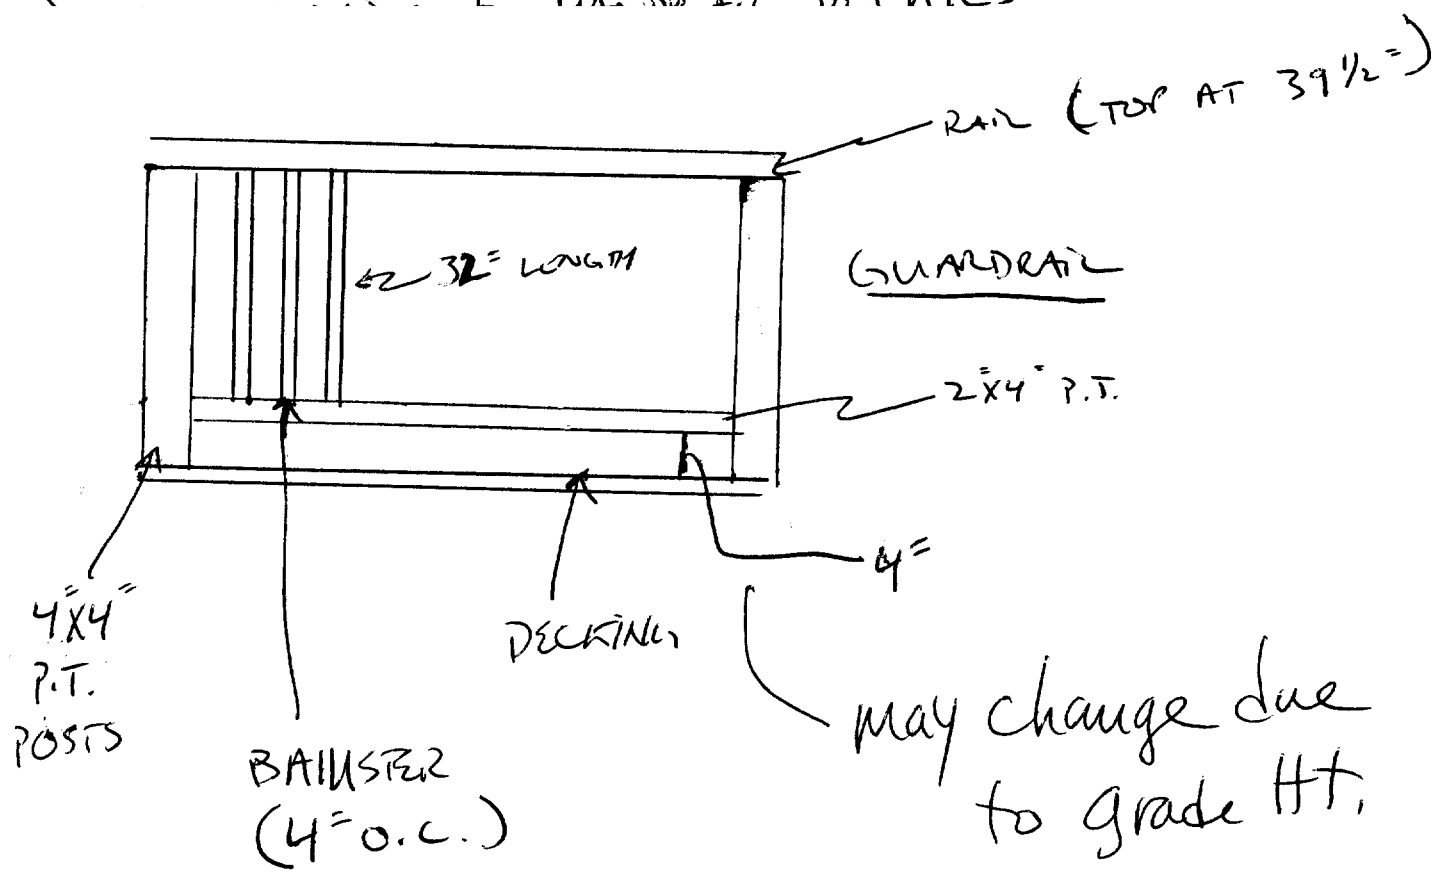 RAIL (TOP AT 39 1/2")
32" LENGTH
GUARDRAIL
2"X4" P.T.
4"
4"X4"
P.T.
POSTS
DECKING
BANISTER
(4" o.c.)
may change due
to grade Ht.